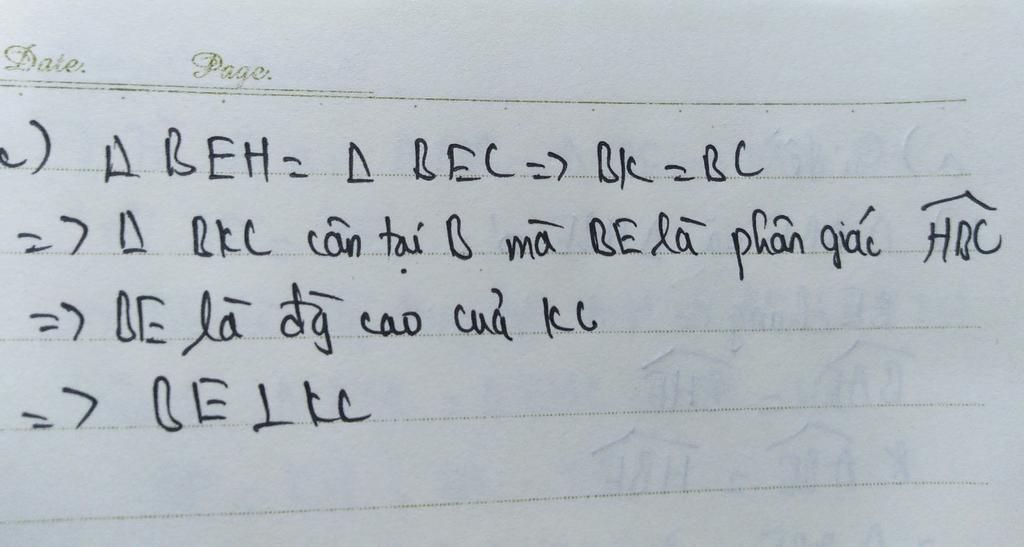 Date. Page.
c) Δ BEH = Δ BEC => BK = BC
=> Δ BKC cân tại B mà BE là phân giác HBC
=> BE là đg cao cuả KC
=> BE ⊥ KC